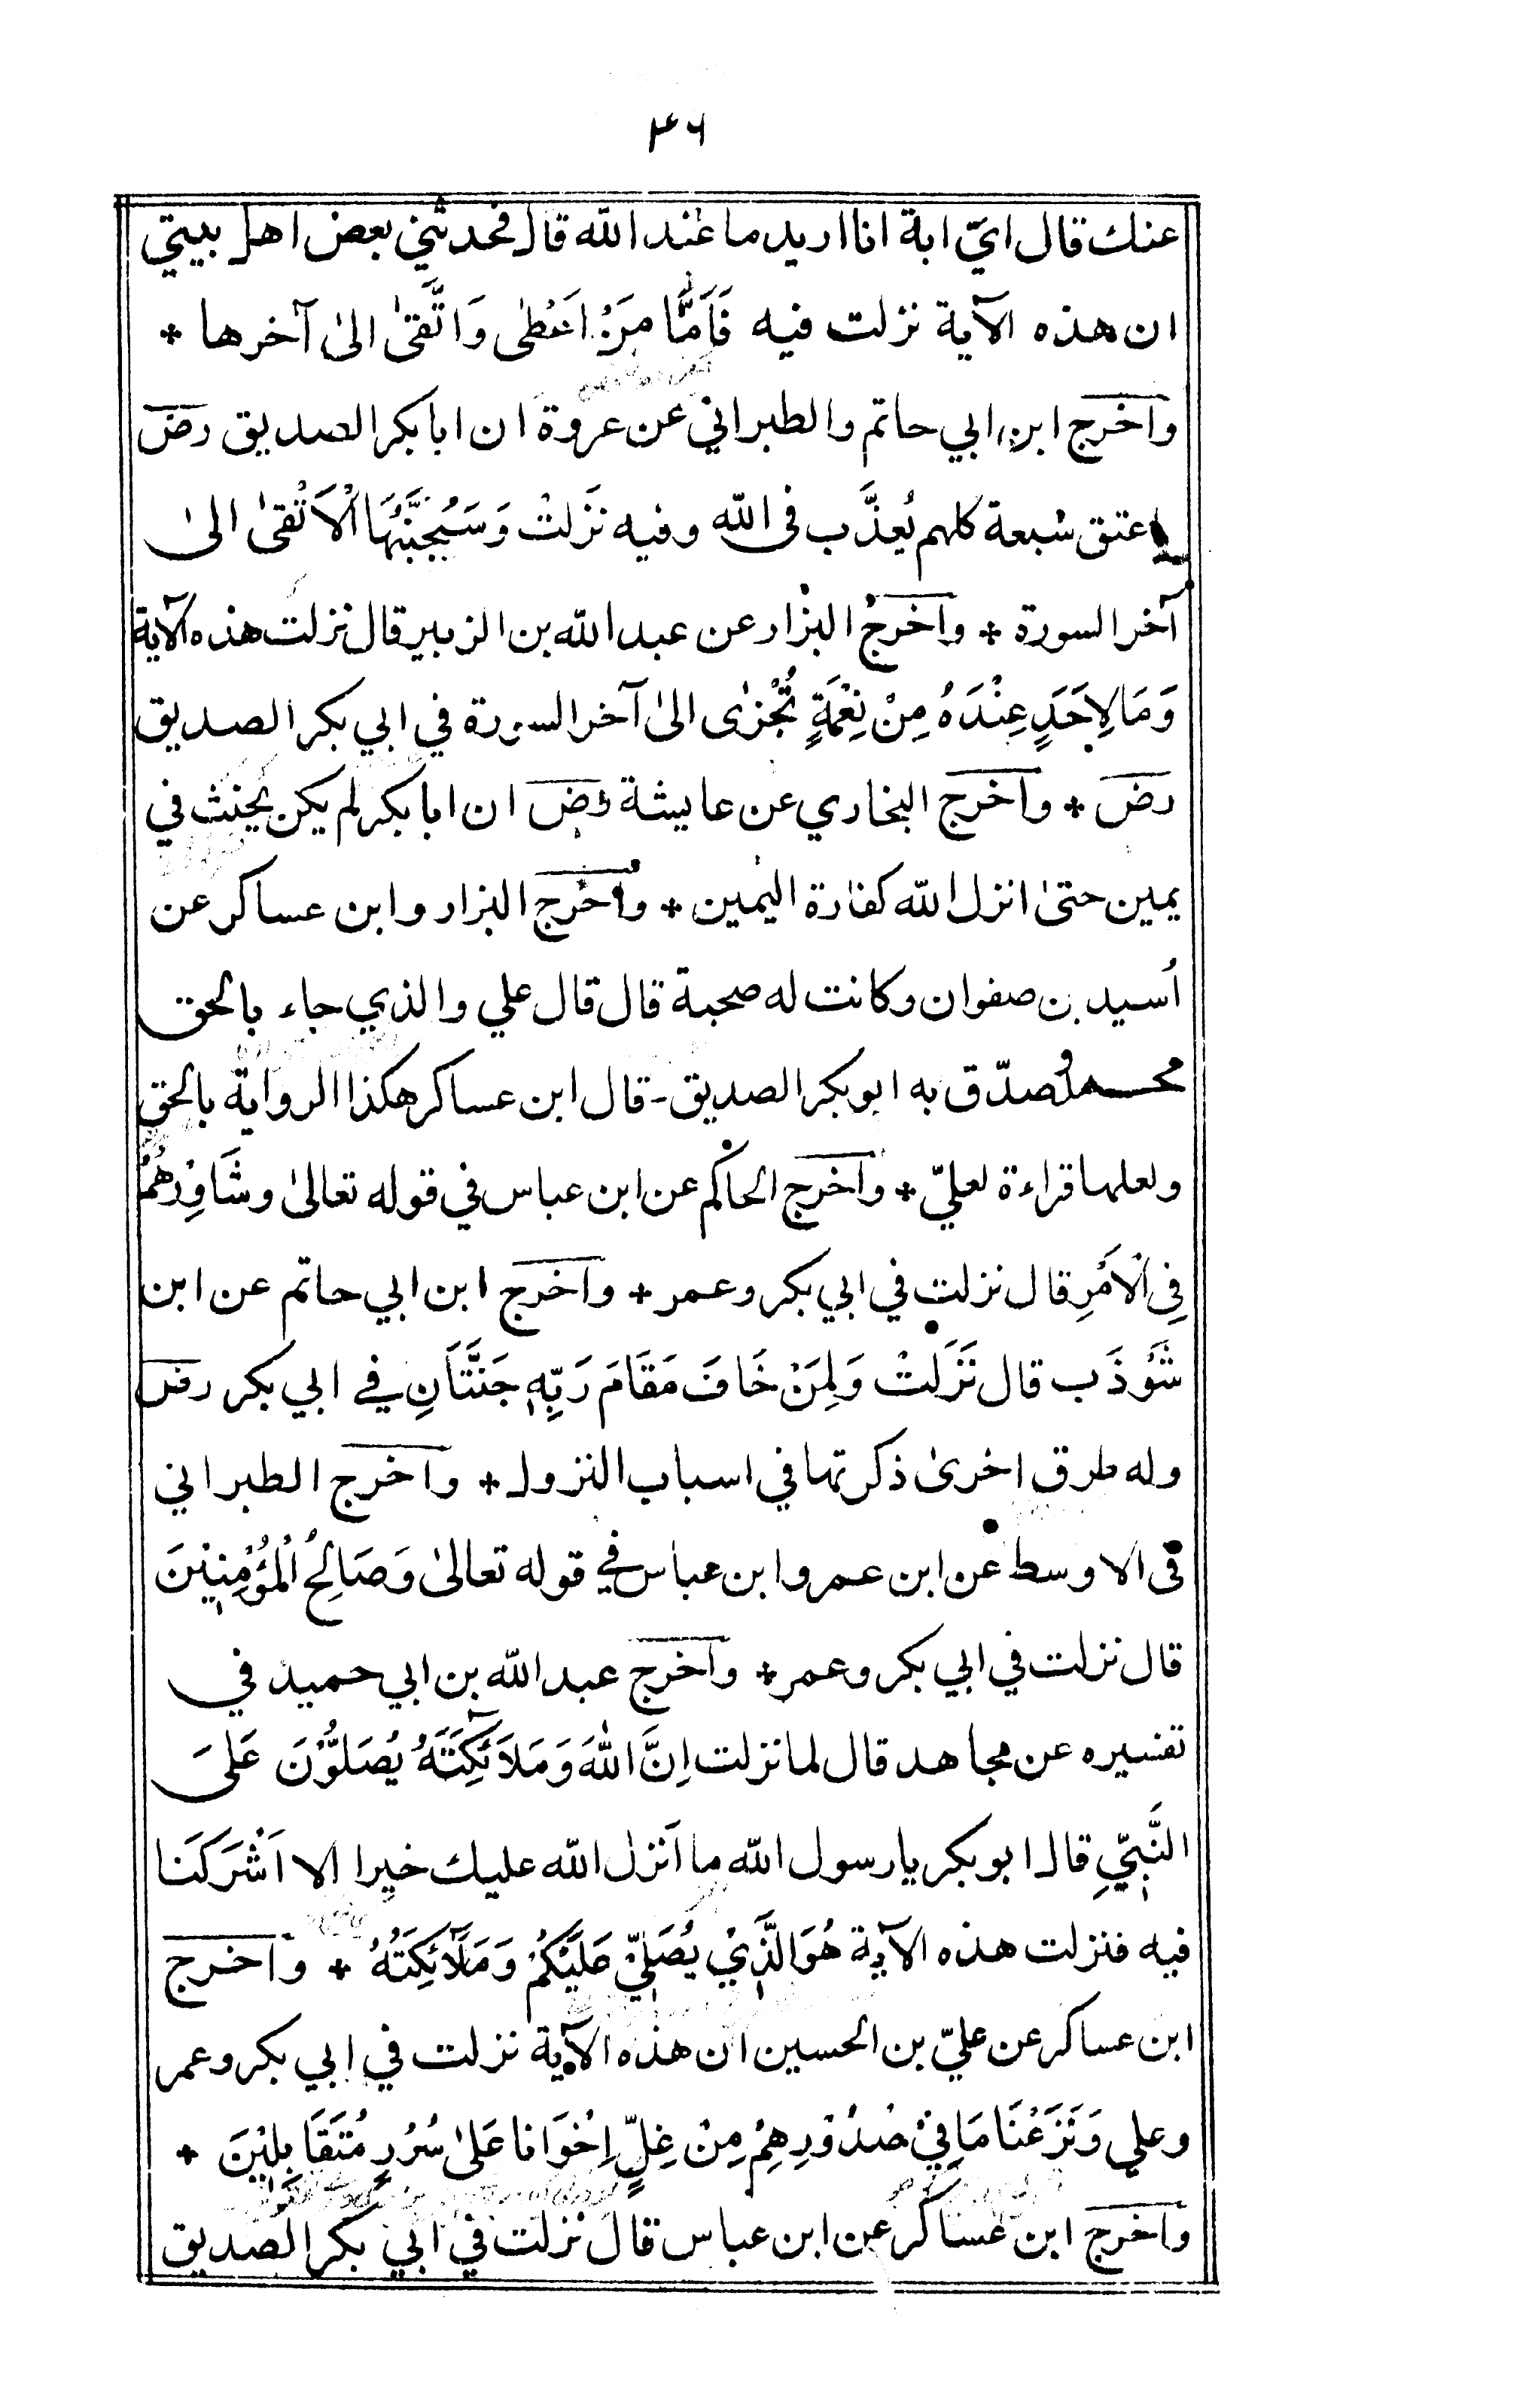 ۴۶
عنك قال ايّ ابة انا اريد ما عند الله قال فحدثني بعض اهل بيتي
ان هذه الآية نزلت فيه فَاَمَّا مَنْ اَعْطٰى وَاتَّقىٰ الىٰ آخرها *
واخرج ابن ابي حاتم والطبراني عن عروة ان ابا بكر الصديق رض
اعتق سبعة كلهم يُعذَّب فى الله وفيه نَزَلتْ وَسَيُجَنَّبُهَا الْاَتْقىٰ الىٰ
آخر السورة * واخرج البزار عن عبد الله بن الزبير قال نزلت هذه الآية
وَمَا لِاَحَدٍ عِنْدَهُ مِنْ نِعْمَةٍ تُجْزٰى الىٰ آخر السورة في ابي بكر الصديق
رض * واخرج البخاري عن عايشة رض ان ابا بكر لم يكن يحنث في
يمين حتىٰ انزل الله كفارة اليمين * واخرج البزار وابن عساكر عن
اُسيد بن صفوان وكانت له صحبة قال قال علي والذي جاء بالحق
محمد وصدّق به ابو بكر الصديق - قال ابن عساكر هكذا الرواية بالحق
ولعلها قراءة لعليّ * واخرج الحاكم عن ابن عباس في قوله تعالىٰ وشَاوِرْهُمْ
فِى الْاَمْرِ قال نزلت في ابي بكر وعمر * واخرج ابن ابي حاتم عن ابن
شَوْذَب قال نَزَلَتْ وَلِمَنْ خَافَ مَقَامَ رَبِّهٖ جَنَّتَانِ في ابي بكر رض
وله طرق اخرىٰ ذكرتها في اسباب النزول * واخرج الطبراني
فى الاوسط عن ابن عمر وابن عباس في قوله تعالىٰ وَصَالِحُ الْمُؤْمِنِيْنَ
قال نزلت في ابي بكر وعمر * واخرج عبد الله بن ابي حميد في
تفسيره عن مجاهد قال لما نزلت اِنَّ اللّٰهَ وَمَلَآئِكَتَهُ يُصَلُّوْنَ عَلىَ
النَّبِيِّ قال ابو بكر يا رسول الله ما اَنزل الله عليك خيرا الا اَشْرَكَنا
فيه فنزلت هذه الآية هُوَ الَّذِيْ يُصَلِّيْ عَلَيْكُمْ وَمَلَآئِكَتُهُ * واخرج
ابن عساكر عن عليّ بن الحسين ان هذه الآية نزلت في ابي بكر وعمر
وعلي وَنَزَعْنَا مَا فِيْ صُدُوْرِهِمْ مِنْ غِلٍّ اِخْوَانا عَلىٰ سُرُرٍ مُتَقَابِلِيْنَ *
واخرج ابن عساكر عن ابن عباس قال نزلت في ابي بكر الصديق